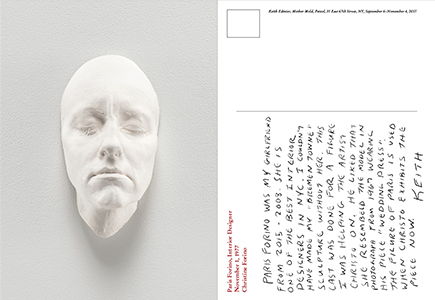 Keith Edmier, Mother Mold, Petzel, 35 East 67th Street, NY, September 6–November 4, 2017
Paris Forino, Interior Designer
November 1, 1977
Christine Forino
PARIS FORINO WAS MY GIRLFRIEND
FROM 2015 - 2008. SHE IS
ONE OF THE BEST INTERIOR
DESIGNERS IN NYC. I COULDN'T
HAVE MADE MY "BREMEN TOWNE"
SCULPTURE WITHOUT HER. THIS
CAST WAS DONE FOR A FIGURE
I WAS HELPING THE ARTIST
CHRISTO ON. HE LIKED THAT
SHE RESEMBLED THE MODEL IN
PHOTOGRAPH FROM 1967 WEARING
HIS PIECE "WEDDING DRESS".
THE FIGURE OF PARIS IS USED
WHEN CHRISTO EXHIBITS THE
PIECE NOW. KEITH